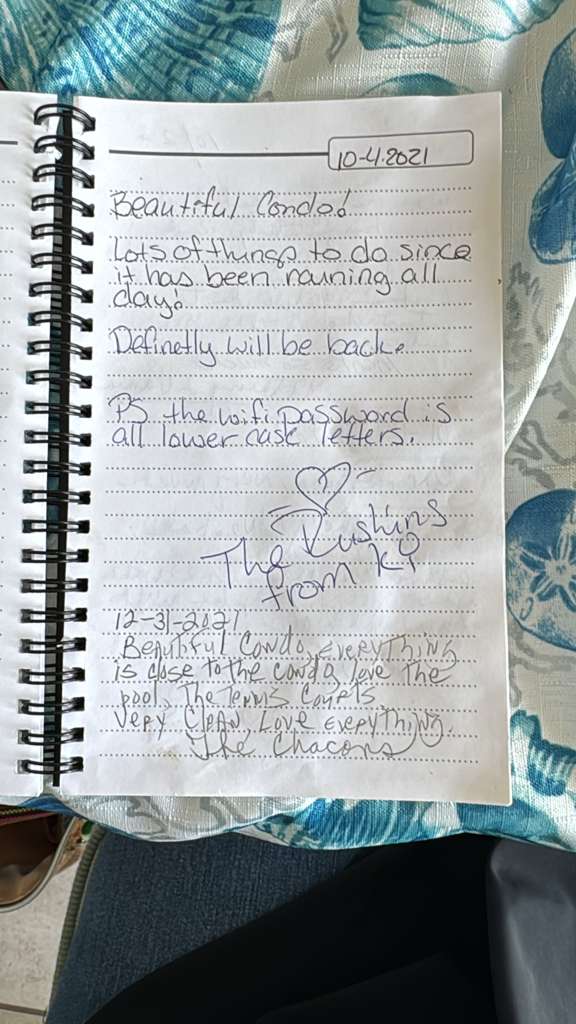 10-4-2021
Beautiful Condo!
Lots of things to do since
it has been raining all
day!
Definetly will be back.
PS the wifi password is
all lower case letters.
The Rushins
from KY
12-31-2021
Beautiful Condo, Everything
is close to the condo, love the
pool, The Tennis Courts,
Very Clean, Love Everything.
The Chacons